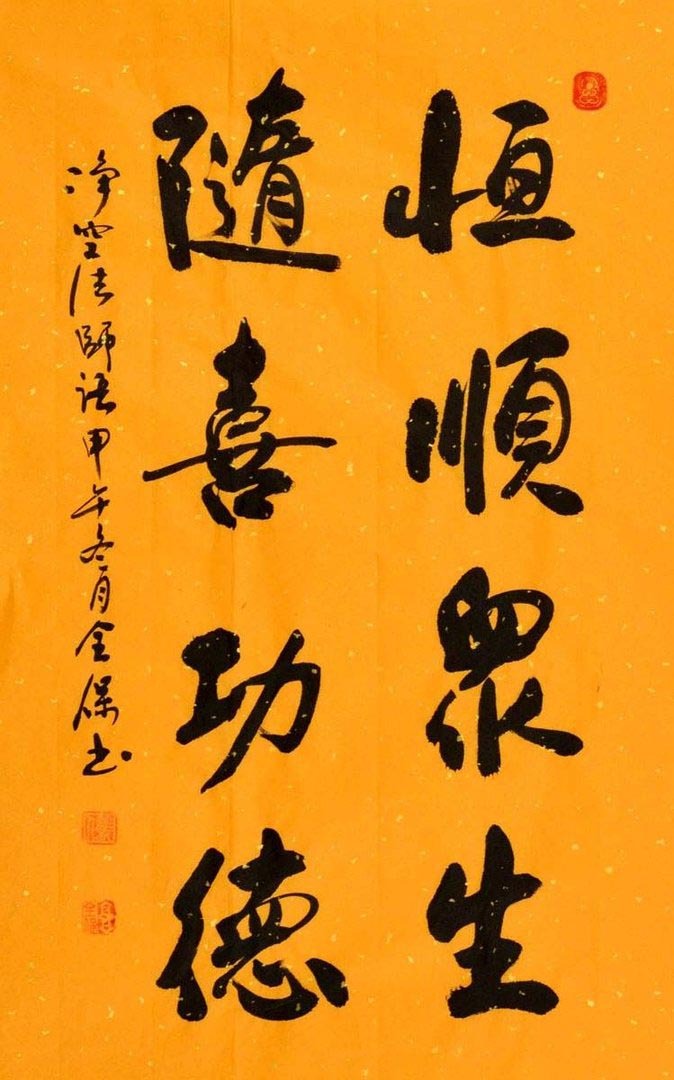 恒順眾生
隨喜功德
净空法師語甲午冬月金保书